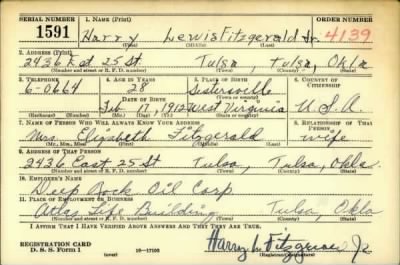 SERIAL NUMBER 1. NAME (Print) ORDER NUMBER
1591 Harry Lewis Fitzgerald Jr. 4139
(First) (Middle) (Last)
2. ADDRESS (Print)
2436 East 25 St Tulsa, Tulsa, Okla
(Number and street or R. F. D. number) (Town) (County) (State)
3. TELEPHONE 4. AGE IN YEARS 5. PLACE OF BIRTH 6. COUNTRY OF CITIZENSHIP
6-0664 28 Sistersville
DATE OF BIRTH (Town or county)
Feb 17, 1912 West Virginia U.S.A
(Exchange) (Number) (Mo.) (Day) (Yr.) (State or country)
7. NAME OF PERSON WHO WILL ALWAYS KNOW YOUR ADDRESS 8. RELATIONSHIP OF THAT PERSON
Mrs. Elizabeth Fitzgerald wife
(Mr., Mrs., Miss) (First) (Middle) (Last)
9. ADDRESS OF THAT PERSON
2436 East 25 St Tulsa, Tulsa, Okla.
(Number and street or R. F. D. number) (Town) (County) (State)
10. EMPLOYER'S NAME
Deep Rock Oil Corp
11. PLACE OF EMPLOYMENT OR BUSINESS
Atlas Life Building Tulsa, Okla
(Number and street or R. F. D. number) (Town) (County) (State)
I AFFIRM THAT I HAVE VERIFIED ABOVE ANSWERS AND THAT THEY ARE TRUE.
REGISTRATION CARD
D. S. S. Form 1 (over) 16-17105 Harry L Fitzgerald Jr.